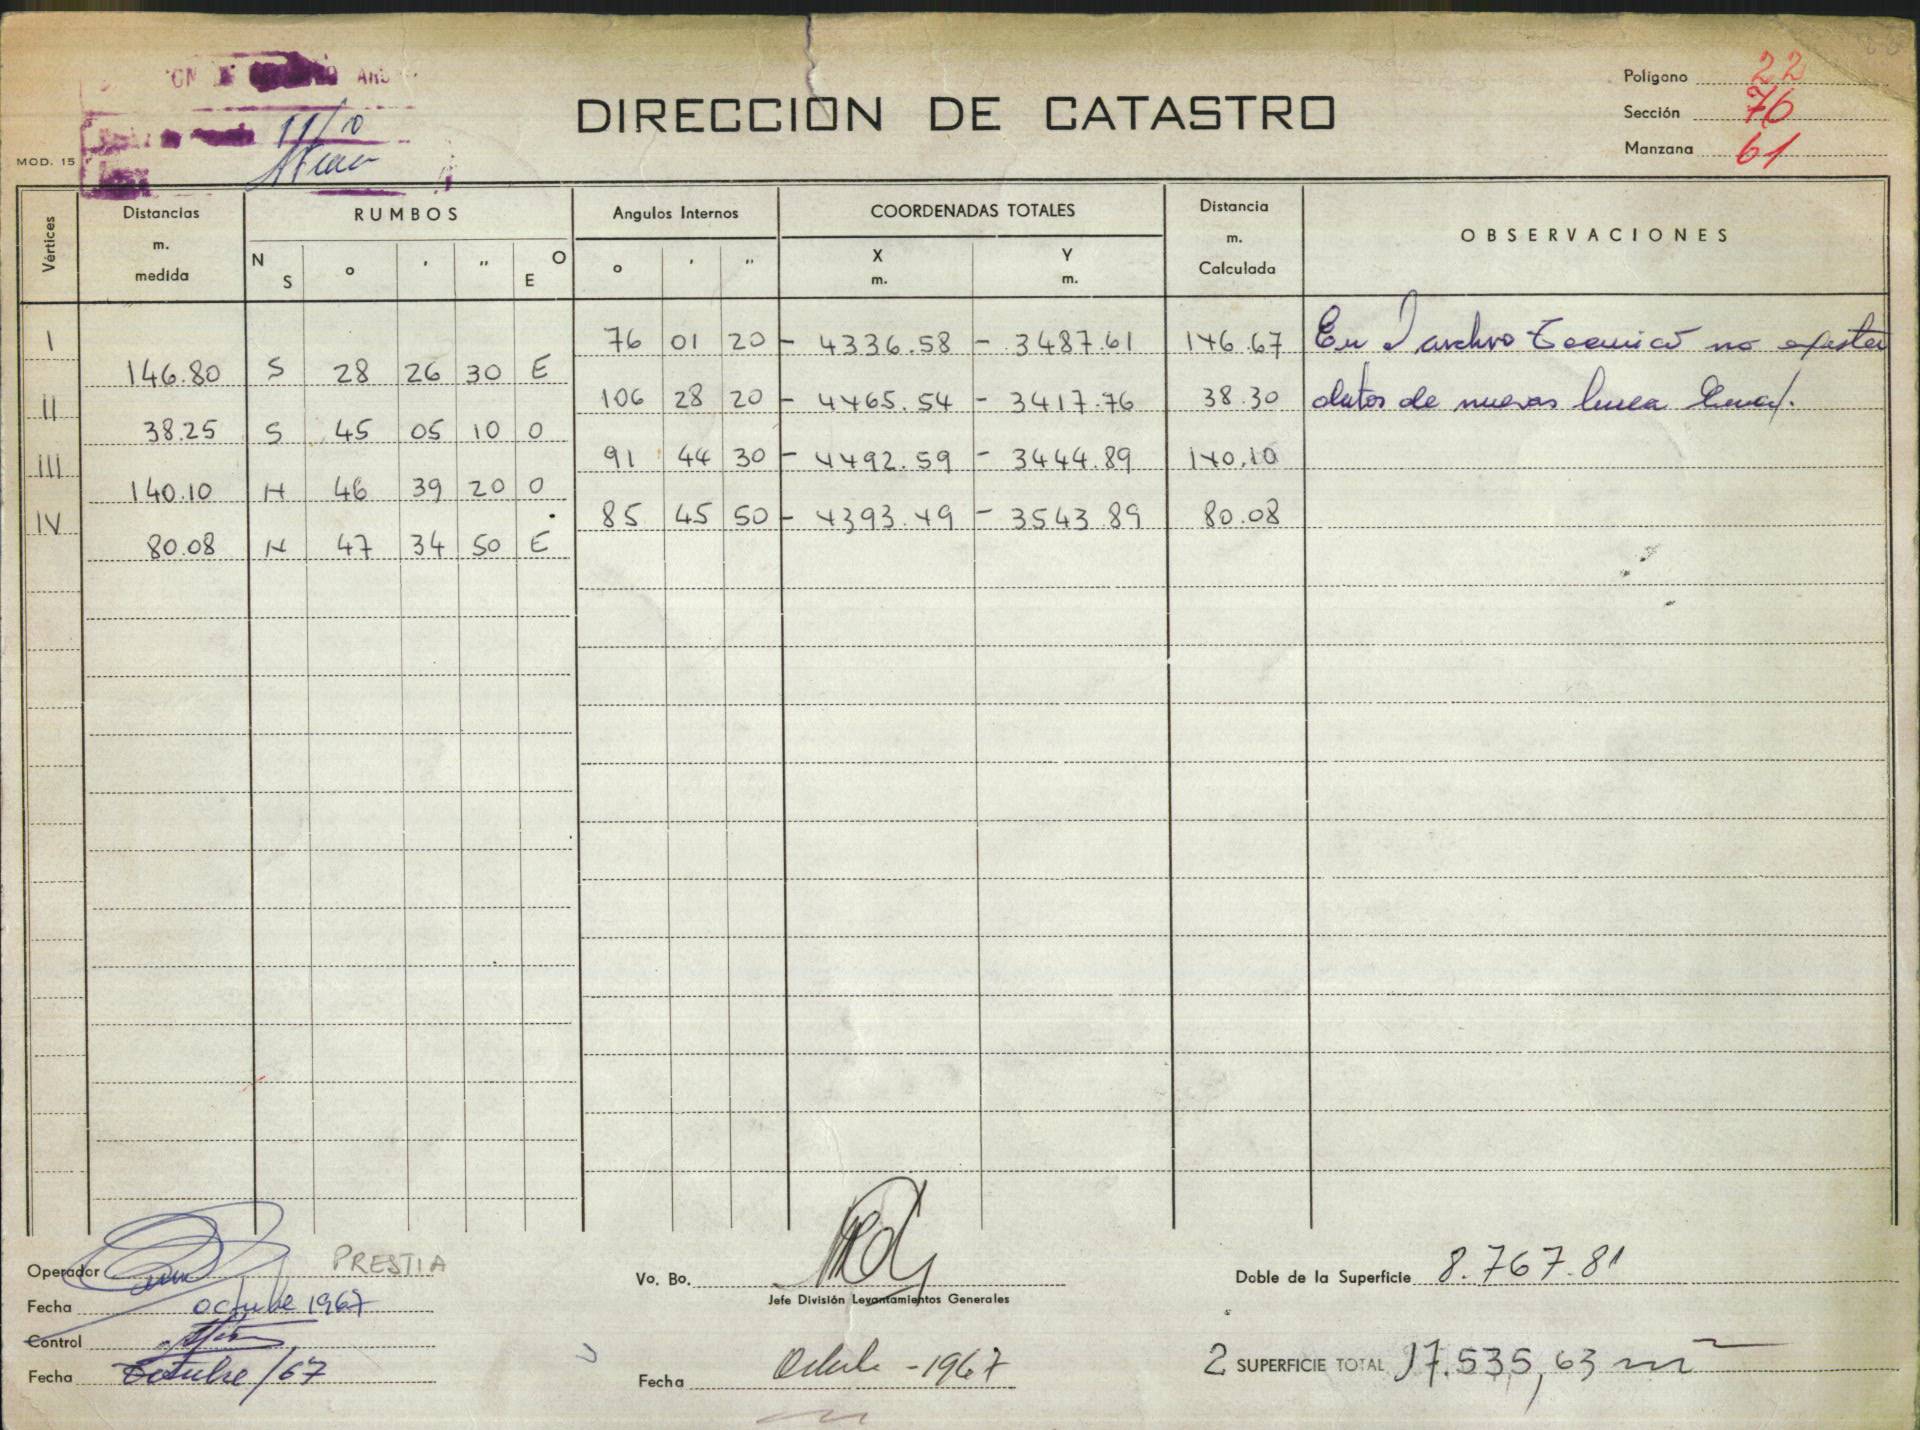 DIRECCION DE CATASTRO
MOD. 15
11/10
Polígono 22
Sección 76
Manzana 61
Vértices
Distancias m. medida
RUMBOS
N S ° ' " E O
Angulos Internos
° ' "
COORDENADAS TOTALES
X m. Y m.
Distancia m. Calculada
OBSERVACIONES
I 76 01 20 - 4336.58 - 3487.61 146.67 En archivo Tecnico no existen
146.80 S 28 26 30 E
II 106 28 20 - 4465.54 - 3417.76 38.30 datos de nuevas linea
38.25 S 45 05 10 O
III 91 44 30 - 4492.59 - 3444.89 140.10
140.10 N 46 39 20 O
IV 85 45 50 - 4393.49 - 3543.89 80.08
80.08 N 47 34 50 E
Operador PRESTIA
Fecha octubre 1967
Control
Fecha Octubre/67
Vo. Bo.
Jefe División Levantamientos Generales
Fecha Octubre - 1967
Doble de la Superficie 8.767.81
2 SUPERFICIE TOTAL 17.535,63 m²